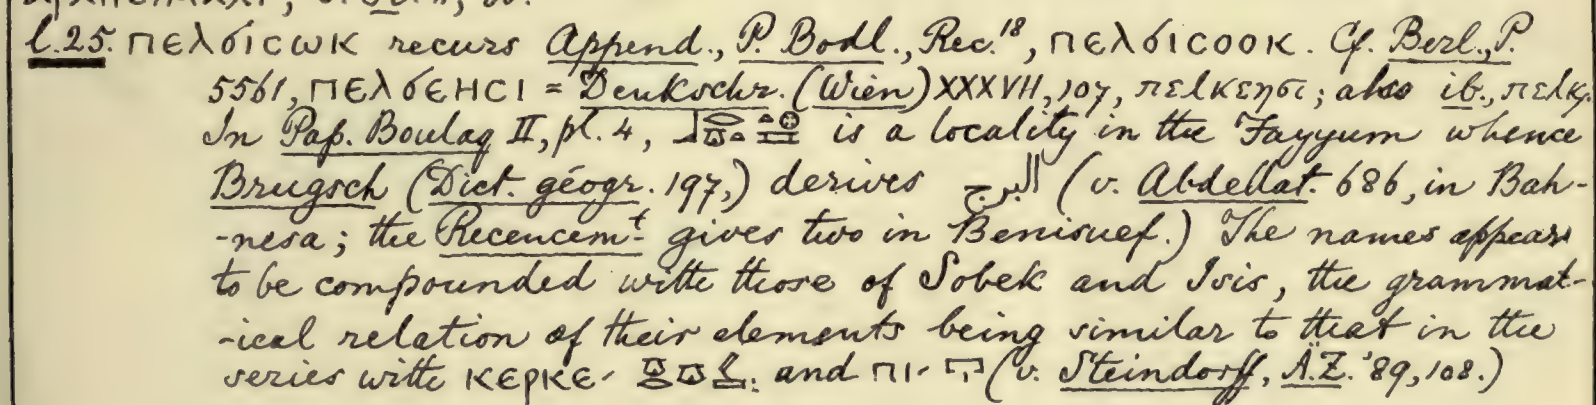 l.25. ⲡⲉⲗϭⲓⲥⲱⲕ recurs Append., P. Bodl., Rec.18, ⲡⲉⲗϭⲓⲥⲟⲟⲕ. Cf. Berl., P.
5561, ⲡⲉⲗϭⲉⲏⲥⲓ = Denkschr. (Wien) XXXVII, 107, πελκεησι; also ib., πελκ
In Pap. Boulaq II, pl. 4, is a locality in the Fayyum whence
Brugsch (Dict. géogr. 197,) derives البرج (v. Abdellat. 686, in Bah-
-nesa; the Recencemt gives two in Benisuef.) The names appear
to be compounded with those of Sobek and Isis, the grammat-
-ical relation of their elements being similar to that in the
series with ⲕⲉⲣⲕⲉ- and ⲡⲓ- 𓉐 (v. Steindorff, Ä.Z. '89, 108.)